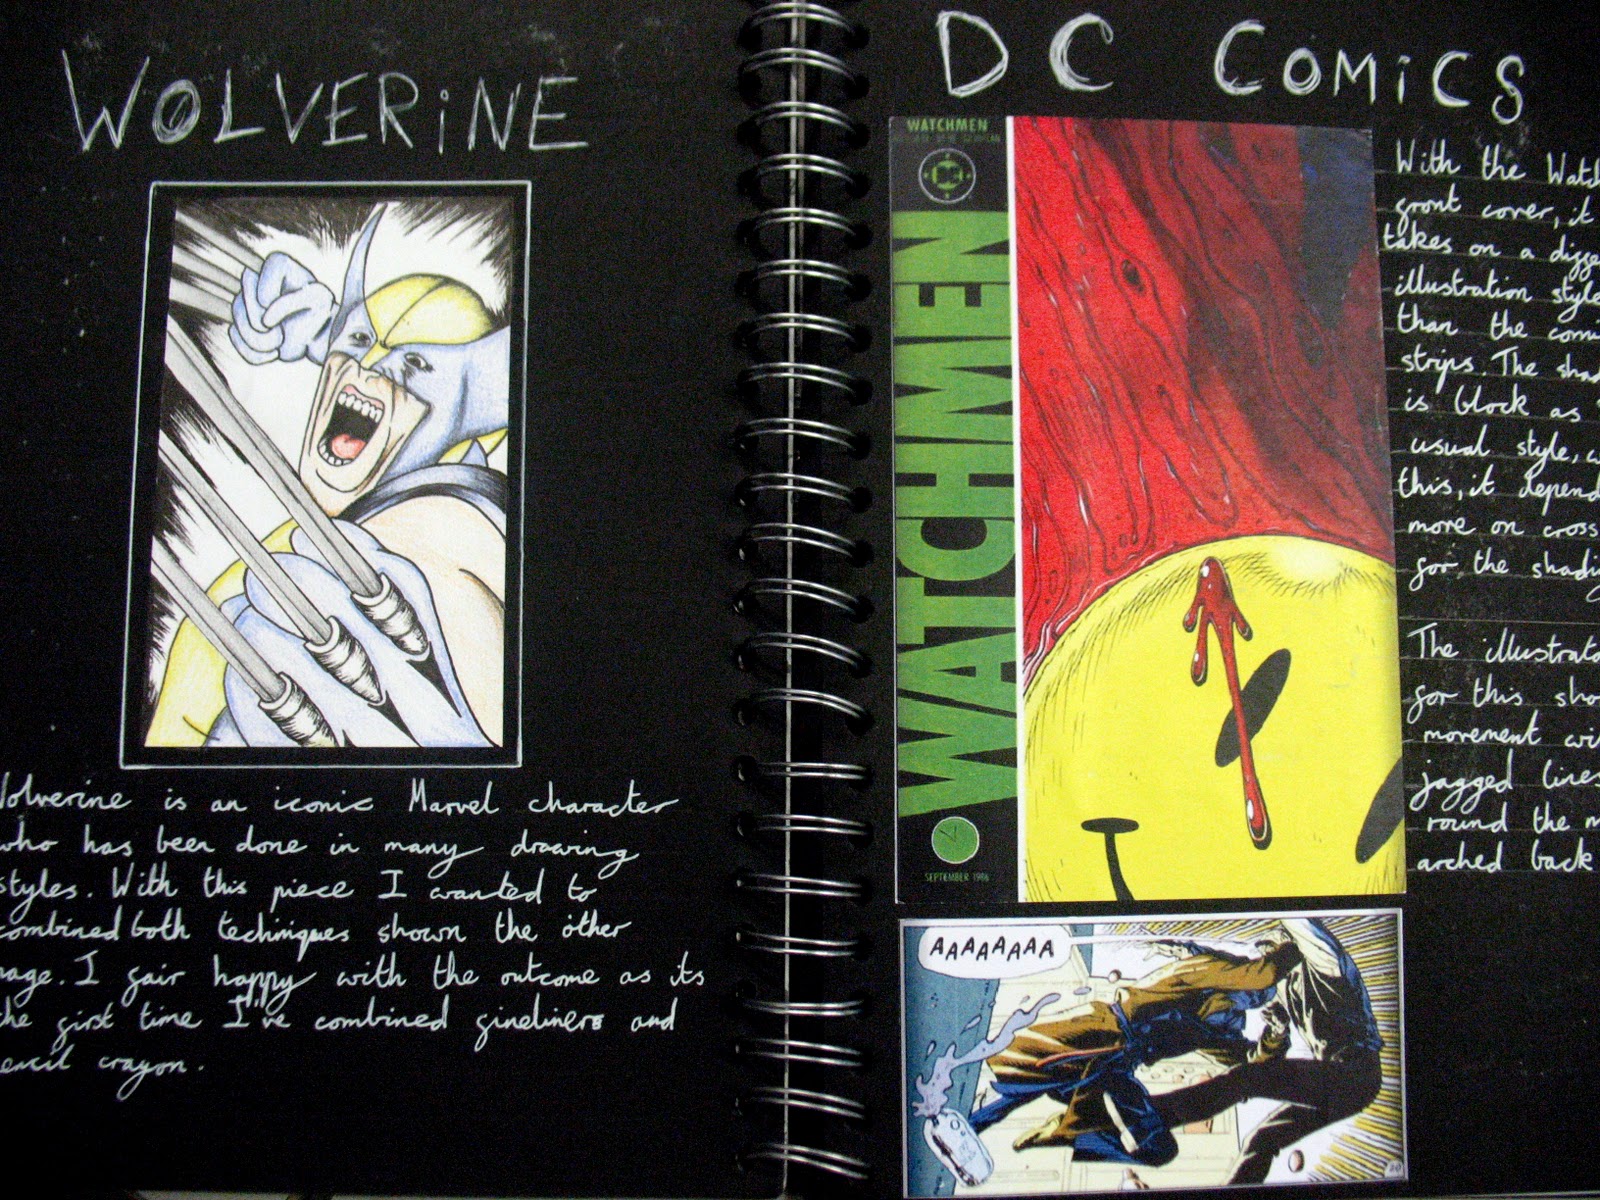 WOLVERiNE
Wolverine is an iconic Marvel character
who has been done in many drawing
styles. With this piece I wanted to
combined both techniques shown the other
page. I fair happy with the outcome as its
the first time I've combined fineliners and
pencil crayon.
DC COMiCS
WATCHMEN
DC
WATCHMEN
SEPTEMBER 1986
With the Watch
front cover, it
takes on a diffe
illustration style
than the comi
strips. The shad
is block as
usual style, w
this, it depend
more on cross
for the shadi
The illustrato
for this sho
movement wi
jagged lines
round the m
arched back
AAAAAAAA
20